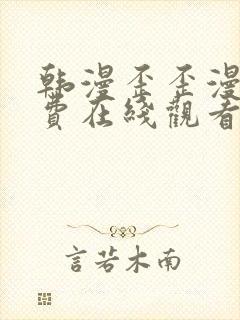 韩漫歪歪漫
费在线觀看
言若木南